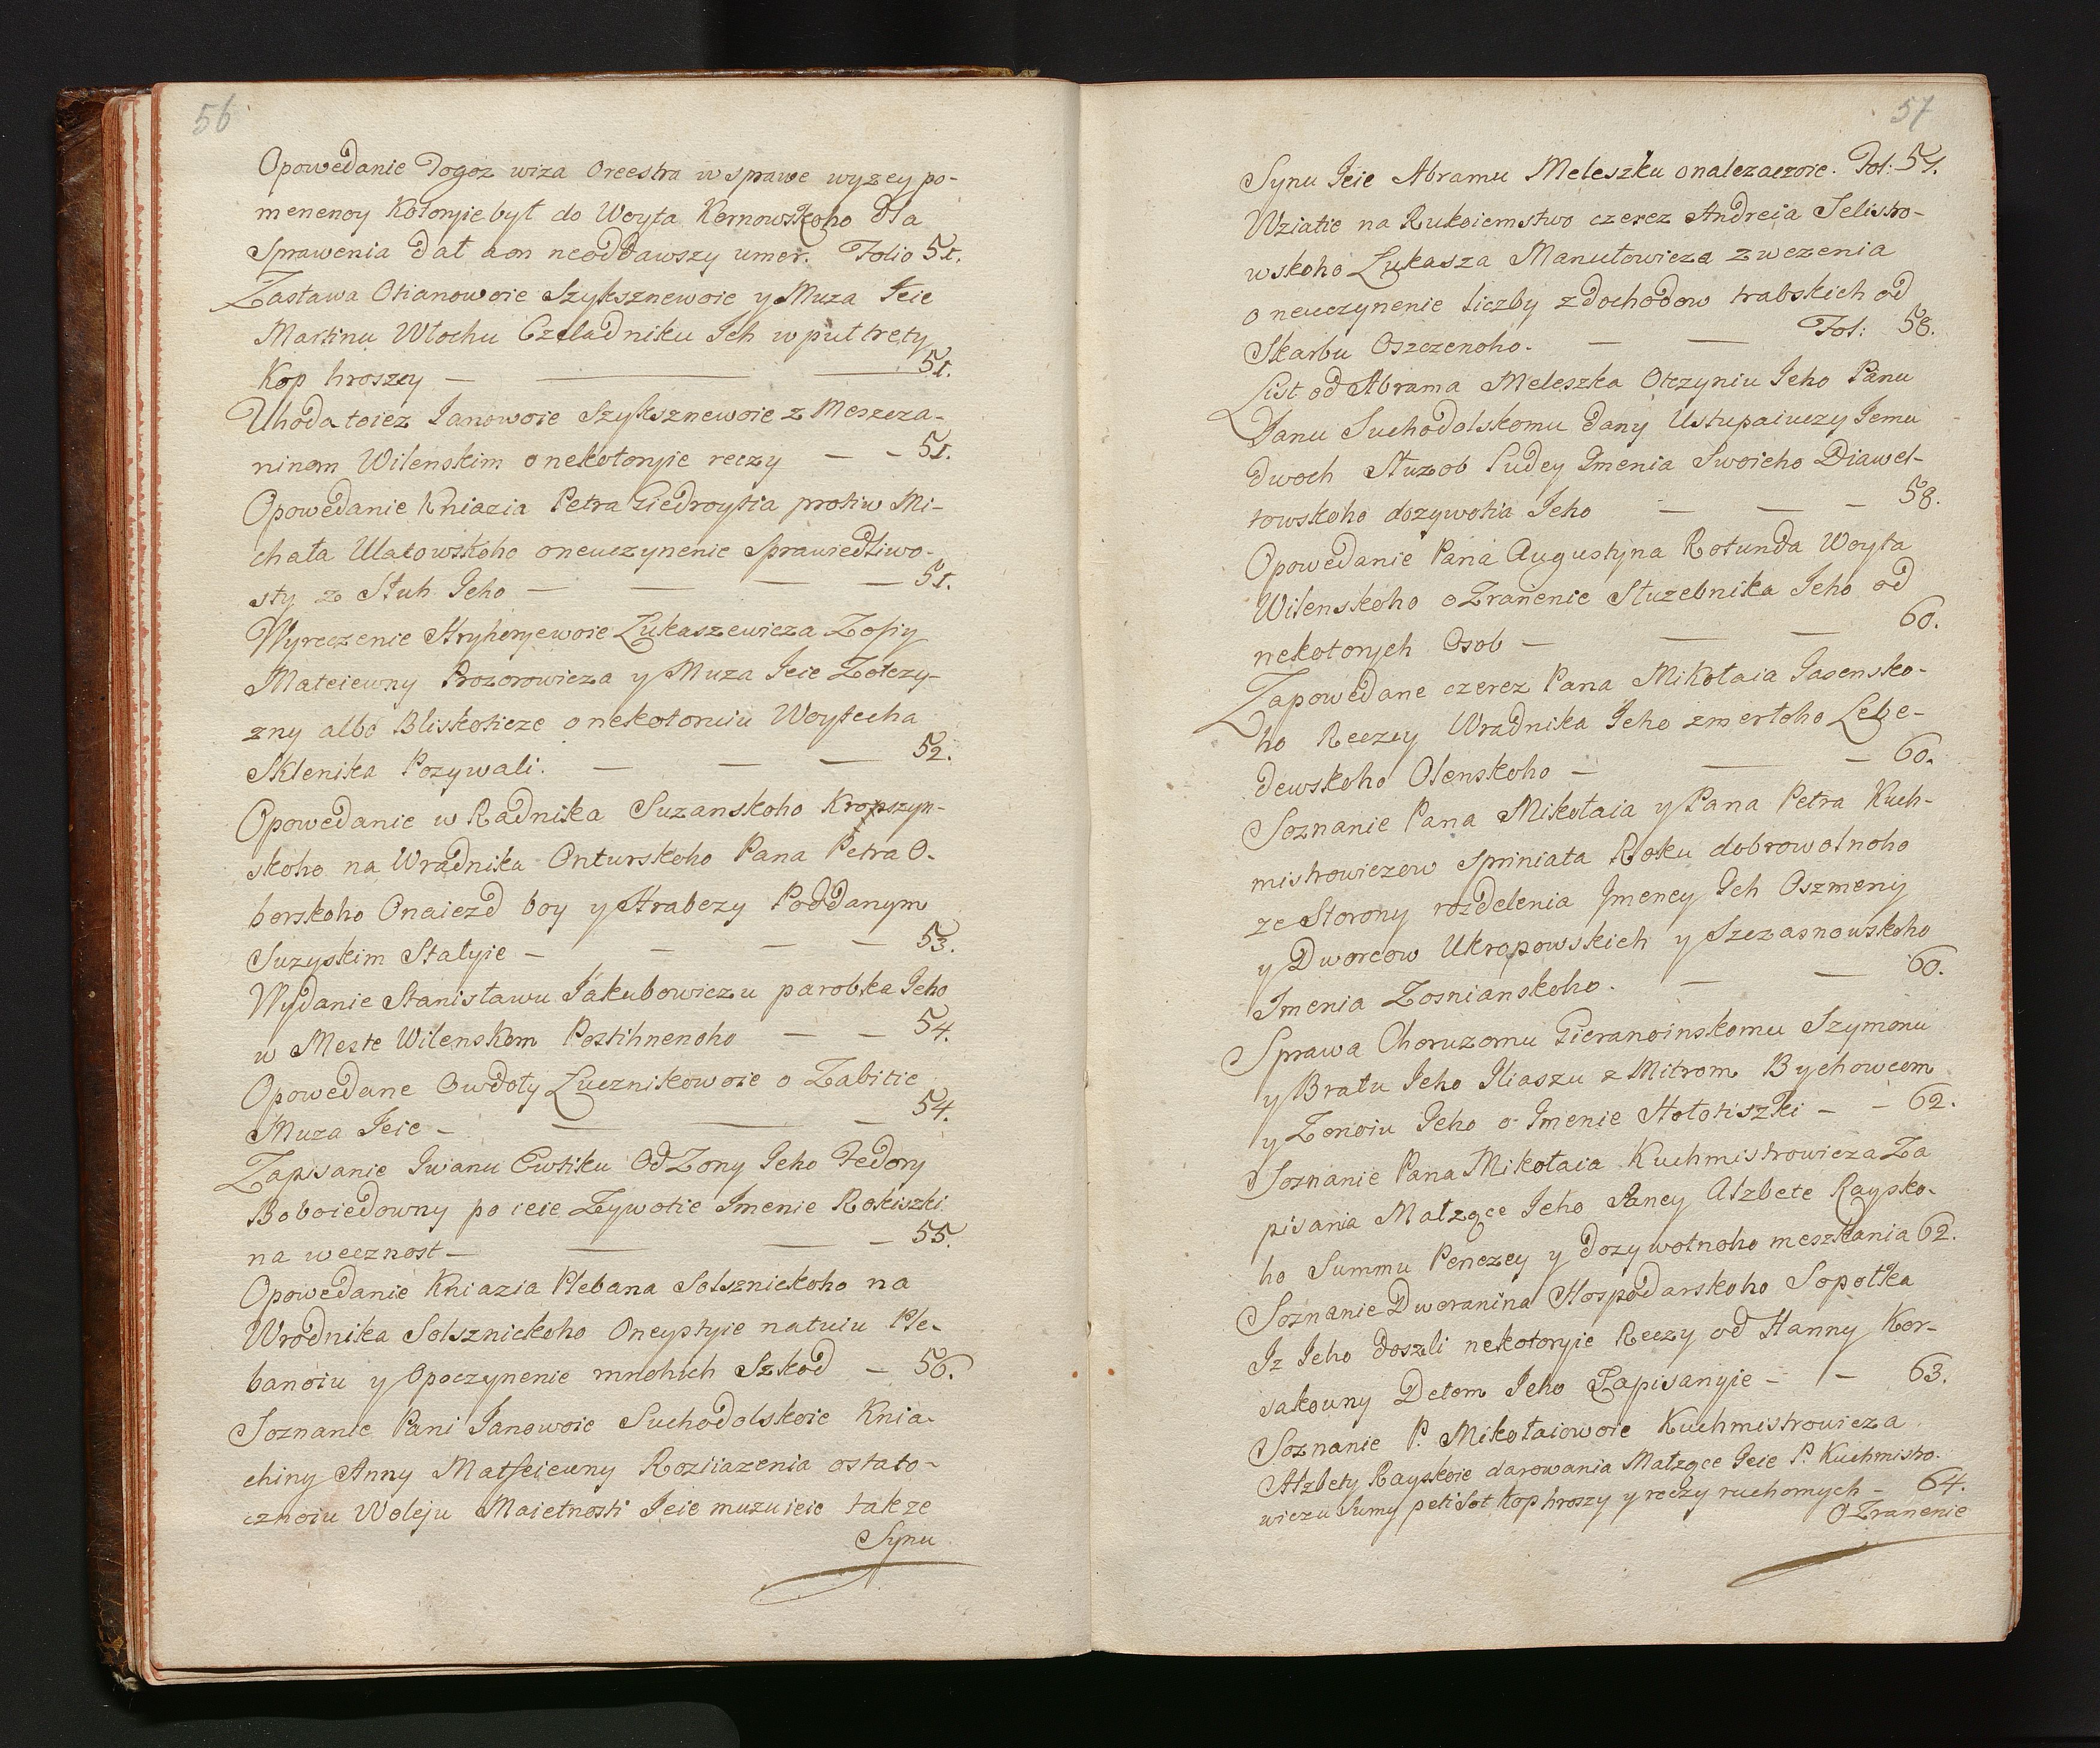 56
Opowedanie Togoż wiza Oreestra w sprawe wyzey po-
menenoy Kotoryie był do Woyta Kernowskoho dla
Sprawenia dał a on neoddawszy umer. Folio 51.
Zastawa Otianowoie Szyksznewoie y Muza Jeie
Martinu Włochu Czeladniku Jch w puł trety
Kop hroszey — 51.
Uhoda toiez Janowoie Szyksznewoie z Meszcza-
ninom Wilenskim o nekotoryie reczy — - 51.
Opowedanie Kniazia Petra Giedroytia protiw Mi-
chała Ulatowskoho o neuczynenie Sprawiedliwo-
sty z Słuh Jeho — 51.
Wyreczenie Hryhoryewoie Łukaszewicza Zofiy
Mateiewny Prozorowicza y Muza Jeie Zotczy-
zny albo Bliskoticze o nekotoruiu Woytecha
Sklenika Pozywali. — 52.
Opowedanie w Radnika Suzanskoho Kropszyn-
skoho na Wradnika Onturskoho Pana Petra O-
borskoho Onaiezd boy y Hrabezy Poddanym
Suzyskim Stałyie — 53.
Wydanie Stanisławu Jakubowiczu parobka Jeho
w Meste Wilenskom Postihnenoho — 54.
Opowedane Owdoty Łucznikowoie o Zabitie
Muza Jeie — 54.
Zapisanie Iwanu Ewtiku Od Zony Jeho Fedory
Boboiedowny po ieie Zywotie Imenie Rokiszki
na wecznost — 55.
Opowedanie Kniazia Plebana Solsznickoho na
Wrodnika Solsznickoho Oneyptyie natuiu Ple-
banoiu y Opoczynenie mnohich Szkod — 56.
Soznanie Pani Janowoie Suchodolskoie Knia-
chiny Anny Matfeiewny Roziiazenia ostato-
cznoiu Woleju Maietnosti Jeie muzu ieie takze
Synu
57
Synu Jeie Abramu Meleszku o nalezaczoie. Fol: 57.
Wziatie na Rukoiemstwo czerez Andreia Selistro-
wskoho Łukasza Manułowicza z wezenia
o neuczynenie liczby z dochodow trabskich od
Skarbu Oszczenoho. — Fol: 58.
List od Abrama Meleszka Otczyniu Jeho Panu
Janu Suchodolskomu dany Ustupaiuczy Jemu
dwoch Służob Ludey Imenia Swoieho Diawel-
towskoho dozywotia Jeho — 58.
Opowedanie Pana Augustyna Rotunda Woyta
Wilenskoho o Zranenie Służebnika Jeho od
nekotorych Osob — 60.
Zapowedane czerez Pana Mikołaia Jasensko-
ho Reczey Wradnika Jeho zmerłoho Lebe-
dewskoho Olenskoho — 60.
Soznanie Pana Mikołaia y Pana Petra Kuch-
mistrowiczow spriniata Roku dobrowolnoho
ze Storony rozdelenia Imeney Jch Oszmeny
y Dworcow Ukropowskich y Szczasnowskoho
Imenia Zosnianskoho. — 60.
Sprawa Choruzomu Gieranoinskomu Szymonu
y Bratu Jeho Iliaszu z Mitrom Bychowcom
y Zonoiu Jeho o Imenie Hołotiszki — - 62.
Soznanie Pana Mikołaia Kuchmistrowicza Za
pisania Małzące Jeho Paney Alzbete Raysko-
ho Summu Penezey y dozywotnoho meszkania 62.
Soznanie Dworanina Hospodarskoho Sopotka
Iz Jeho doszli nekotoryie Reczy od Hanny Kor-
sakowny Detom Jeho Zapisanyie — — 63.
Soznanie P. Mikołaiowoie Kuchmistrowicza
Alzbety Rayskoie darowania Małzące Jeie P. Kuchmistro-
wiczu Sumy peti Sot kop hroszy y reczy ruchomych — 64.
O Zranenie